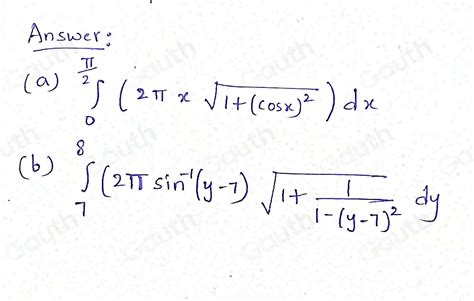 Answer:
(a) ∫₀^(π/2) (2π x √(1+(cosx)²)) dx
(b) ∫₇⁸ (2π sin⁻¹(y-7) √(1 + 1/(1-(y-7)²)) dy